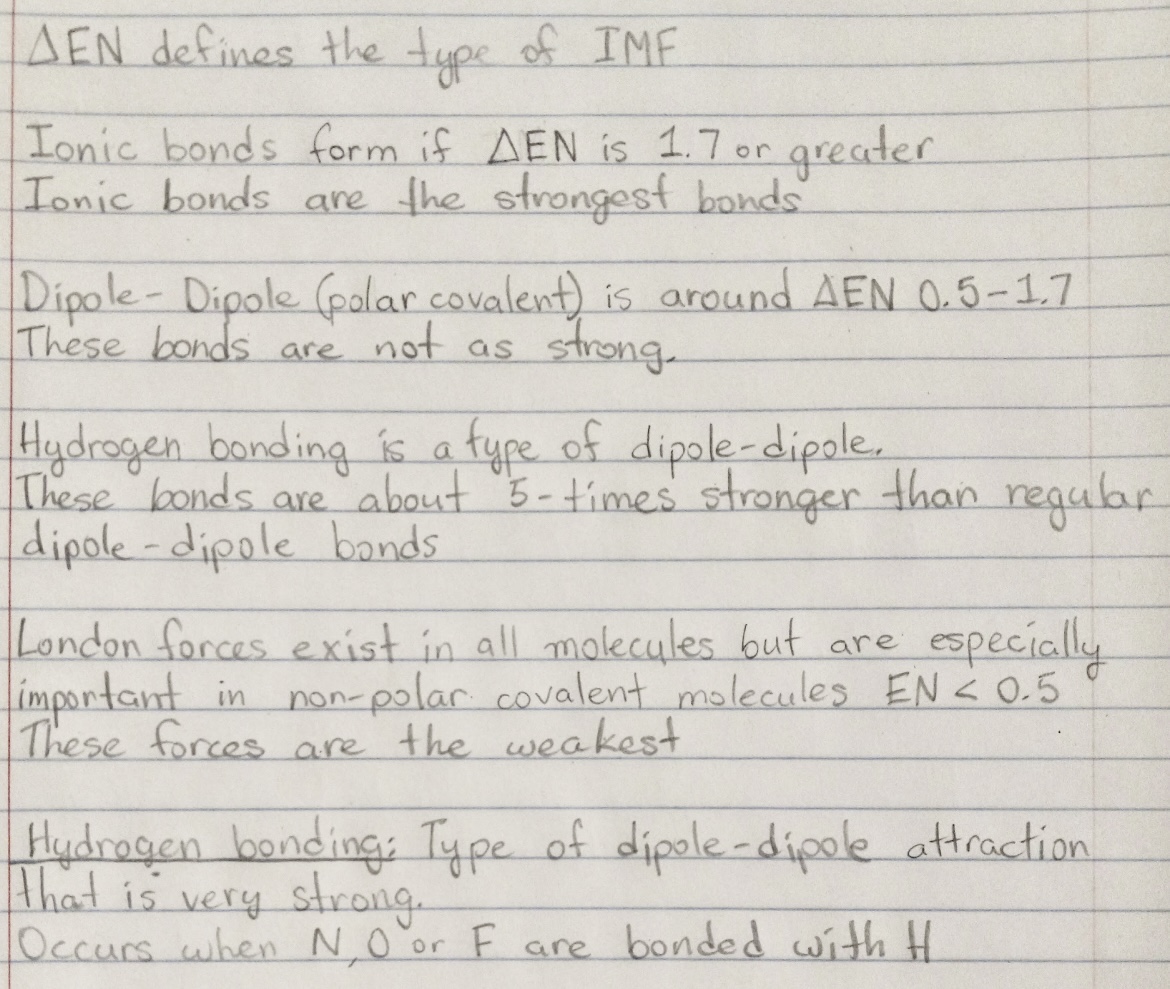 ΔEN defines the type of IMF
Ionic bonds form if ΔEN is 1.7 or greater
Ionic bonds are the strongest bonds
Dipole- Dipole (polar covalent) is around ΔEN 0.5-1.7
These bonds are not as strong.
Hydrogen bonding is a type of dipole-dipole.
These bonds are about 5-times stronger than regular
dipole-dipole bonds
London forces exist in all molecules but are especially
important in non-polar covalent molecules EN < 0.5
These forces are the weakest
Hydrogen bonding: Type of dipole-dipole attraction
that is very strong.
Occurs when N, O or F are bonded with H